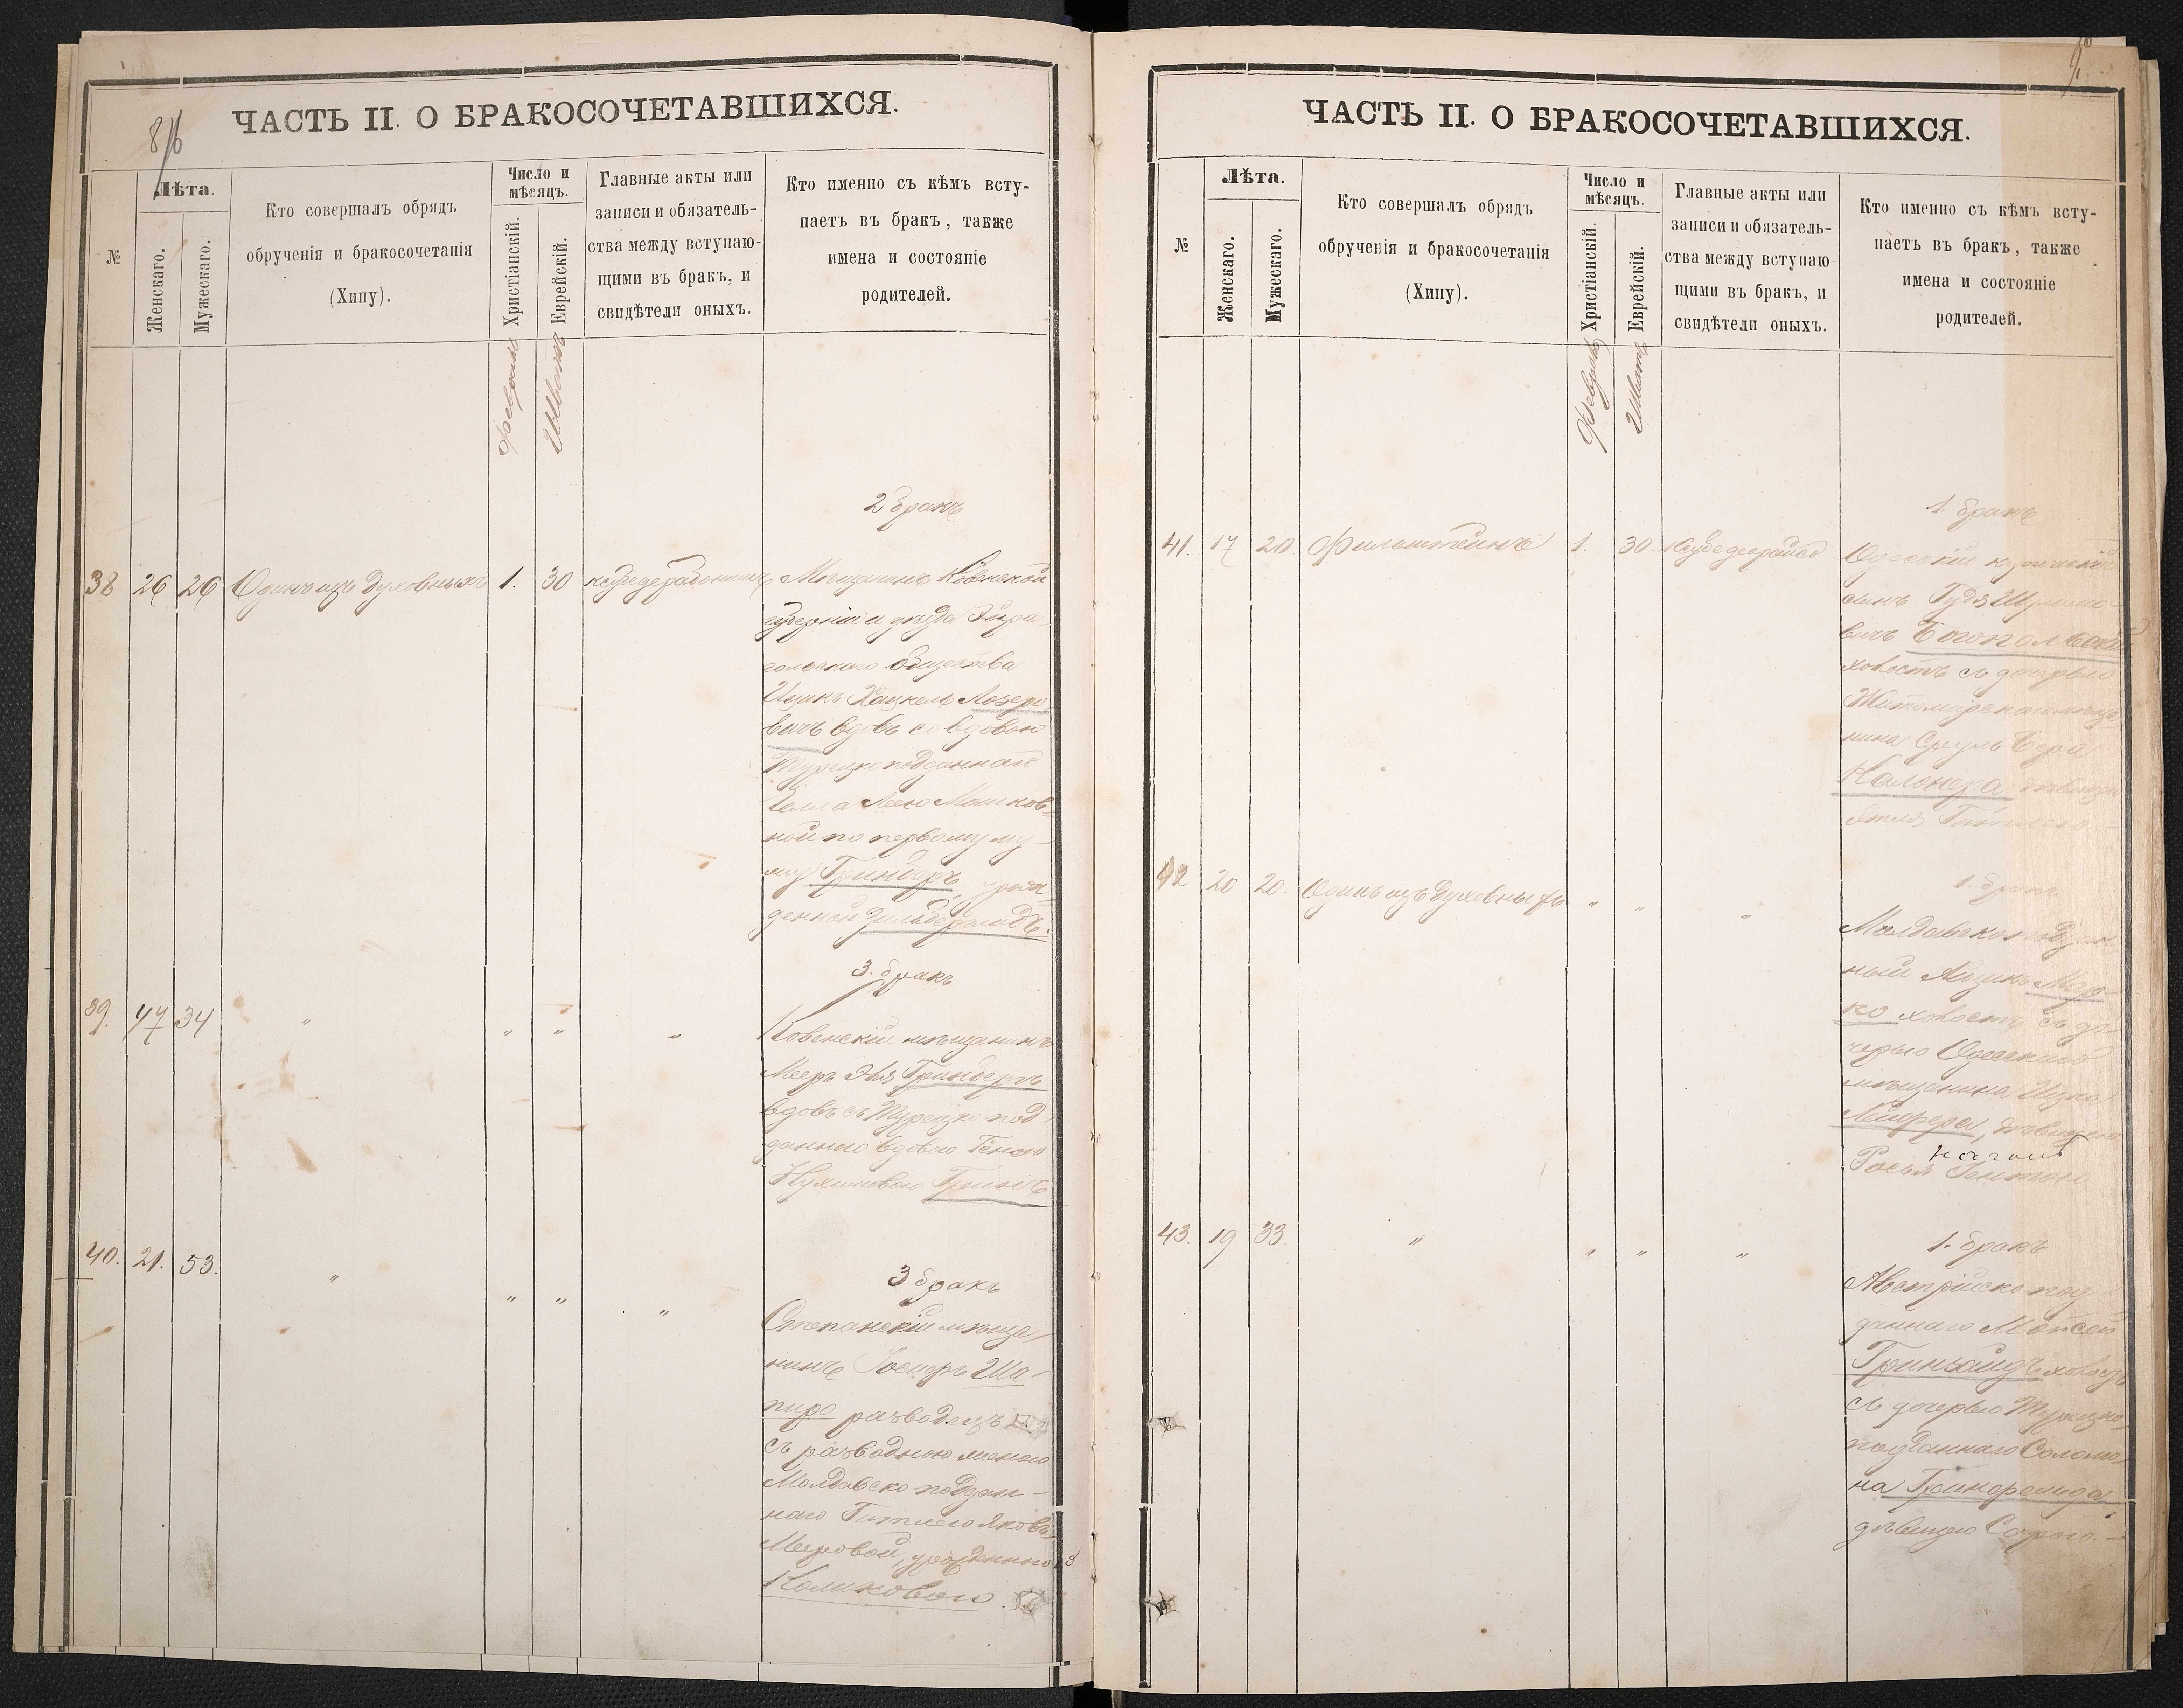 8
ЧАСТЬ II. О БРАКОСОЧЕТАВШИХСЯ.
№
Лѣта.
Женскаго.
Мужескаго.
Кто совершалъ обрядъ
обрученія и бракосочетанія
(Хипу).
Число и
мѣсяцъ.
Христіанскій.
Еврейскій.
Главные акты или
записи и обязатель-
ства между вступаю-
щими въ бракъ, и
свидѣтели оныхъ.
Кто именно съ кѣмъ всту-
паетъ въ бракъ, также
имена и состояніе
родителей.
Февраль
Шватъ
2 бракъ
38 26 26 Одинъ изъ духовныхъ 1. 30 Мѣщанинъ Ковенской
губерніи и уѣзда
гольскаго общества
Ицикъ Хацкель Лозеро-
вичъ вдовъ со вдовою
Турецко подданнаго
Лею Мошков-
ной по первому му-
жу Гринберъ, урож-
денной Зильберфольдъ.
3. бракъ
39. 47 34 " " " " Ковенскій мѣщанинъ
Мееръ Эля Гринбергъ
вдовъ съ Турецко под-
даннаго вдовою Генею
Нухимовою Гринъ
3 бракъ
40. 21. 53. " " " " Степанскій мѣща-
нинъ Іосифъ Ша-
пиро разводецъ
съ разводною женою
Молдавско поддан-
наго Гитлею Яковъ
Меровой, урожденною
Каликовою.
9
ЧАСТЬ II. О БРАКОСОЧЕТАВШИХСЯ.
№
Лѣта.
Женскаго.
Мужескаго.
Кто совершалъ обрядъ
обрученія и бракосочетанія
(Хипу).
Число и
мѣсяцъ.
Христіанскій.
Еврейскій.
Главные акты или
записи и обязатель-
ства между вступаю-
щими въ бракъ, и
свидѣтели оныхъ.
Кто именно съ кѣмъ всту-
паетъ въ бракъ, также
имена и состояніе
родителей.
Февраль
Шватъ
1. бракъ
41. 17 20. Фильштейнъ 1. 30. Одесскій купеческій
сынъ Гудя Шулимо-
вичъ Богопольскій
холостъ съ дочерью
Житомирскаго мѣща-
нина Сруль Бера
Кальнера дѣвицею
Гитлею
1. бракъ
42 20 20. Одинъ изъ духовныхъ " " " Молдавско поддан-
ный Айзикъ Мар-
ко холостъ съ до-
черью Одесскаго
мѣщанина Ицко
Лейфера, дѣвицею
Росья Гентою
1. бракъ
43. 19 33. " " " " Австрійско под-
даннаго Мойсей
холостъ
съ дочерью Турецко-
подданнаго Соломо-
на Гринфельда
дѣвицею Сорою.